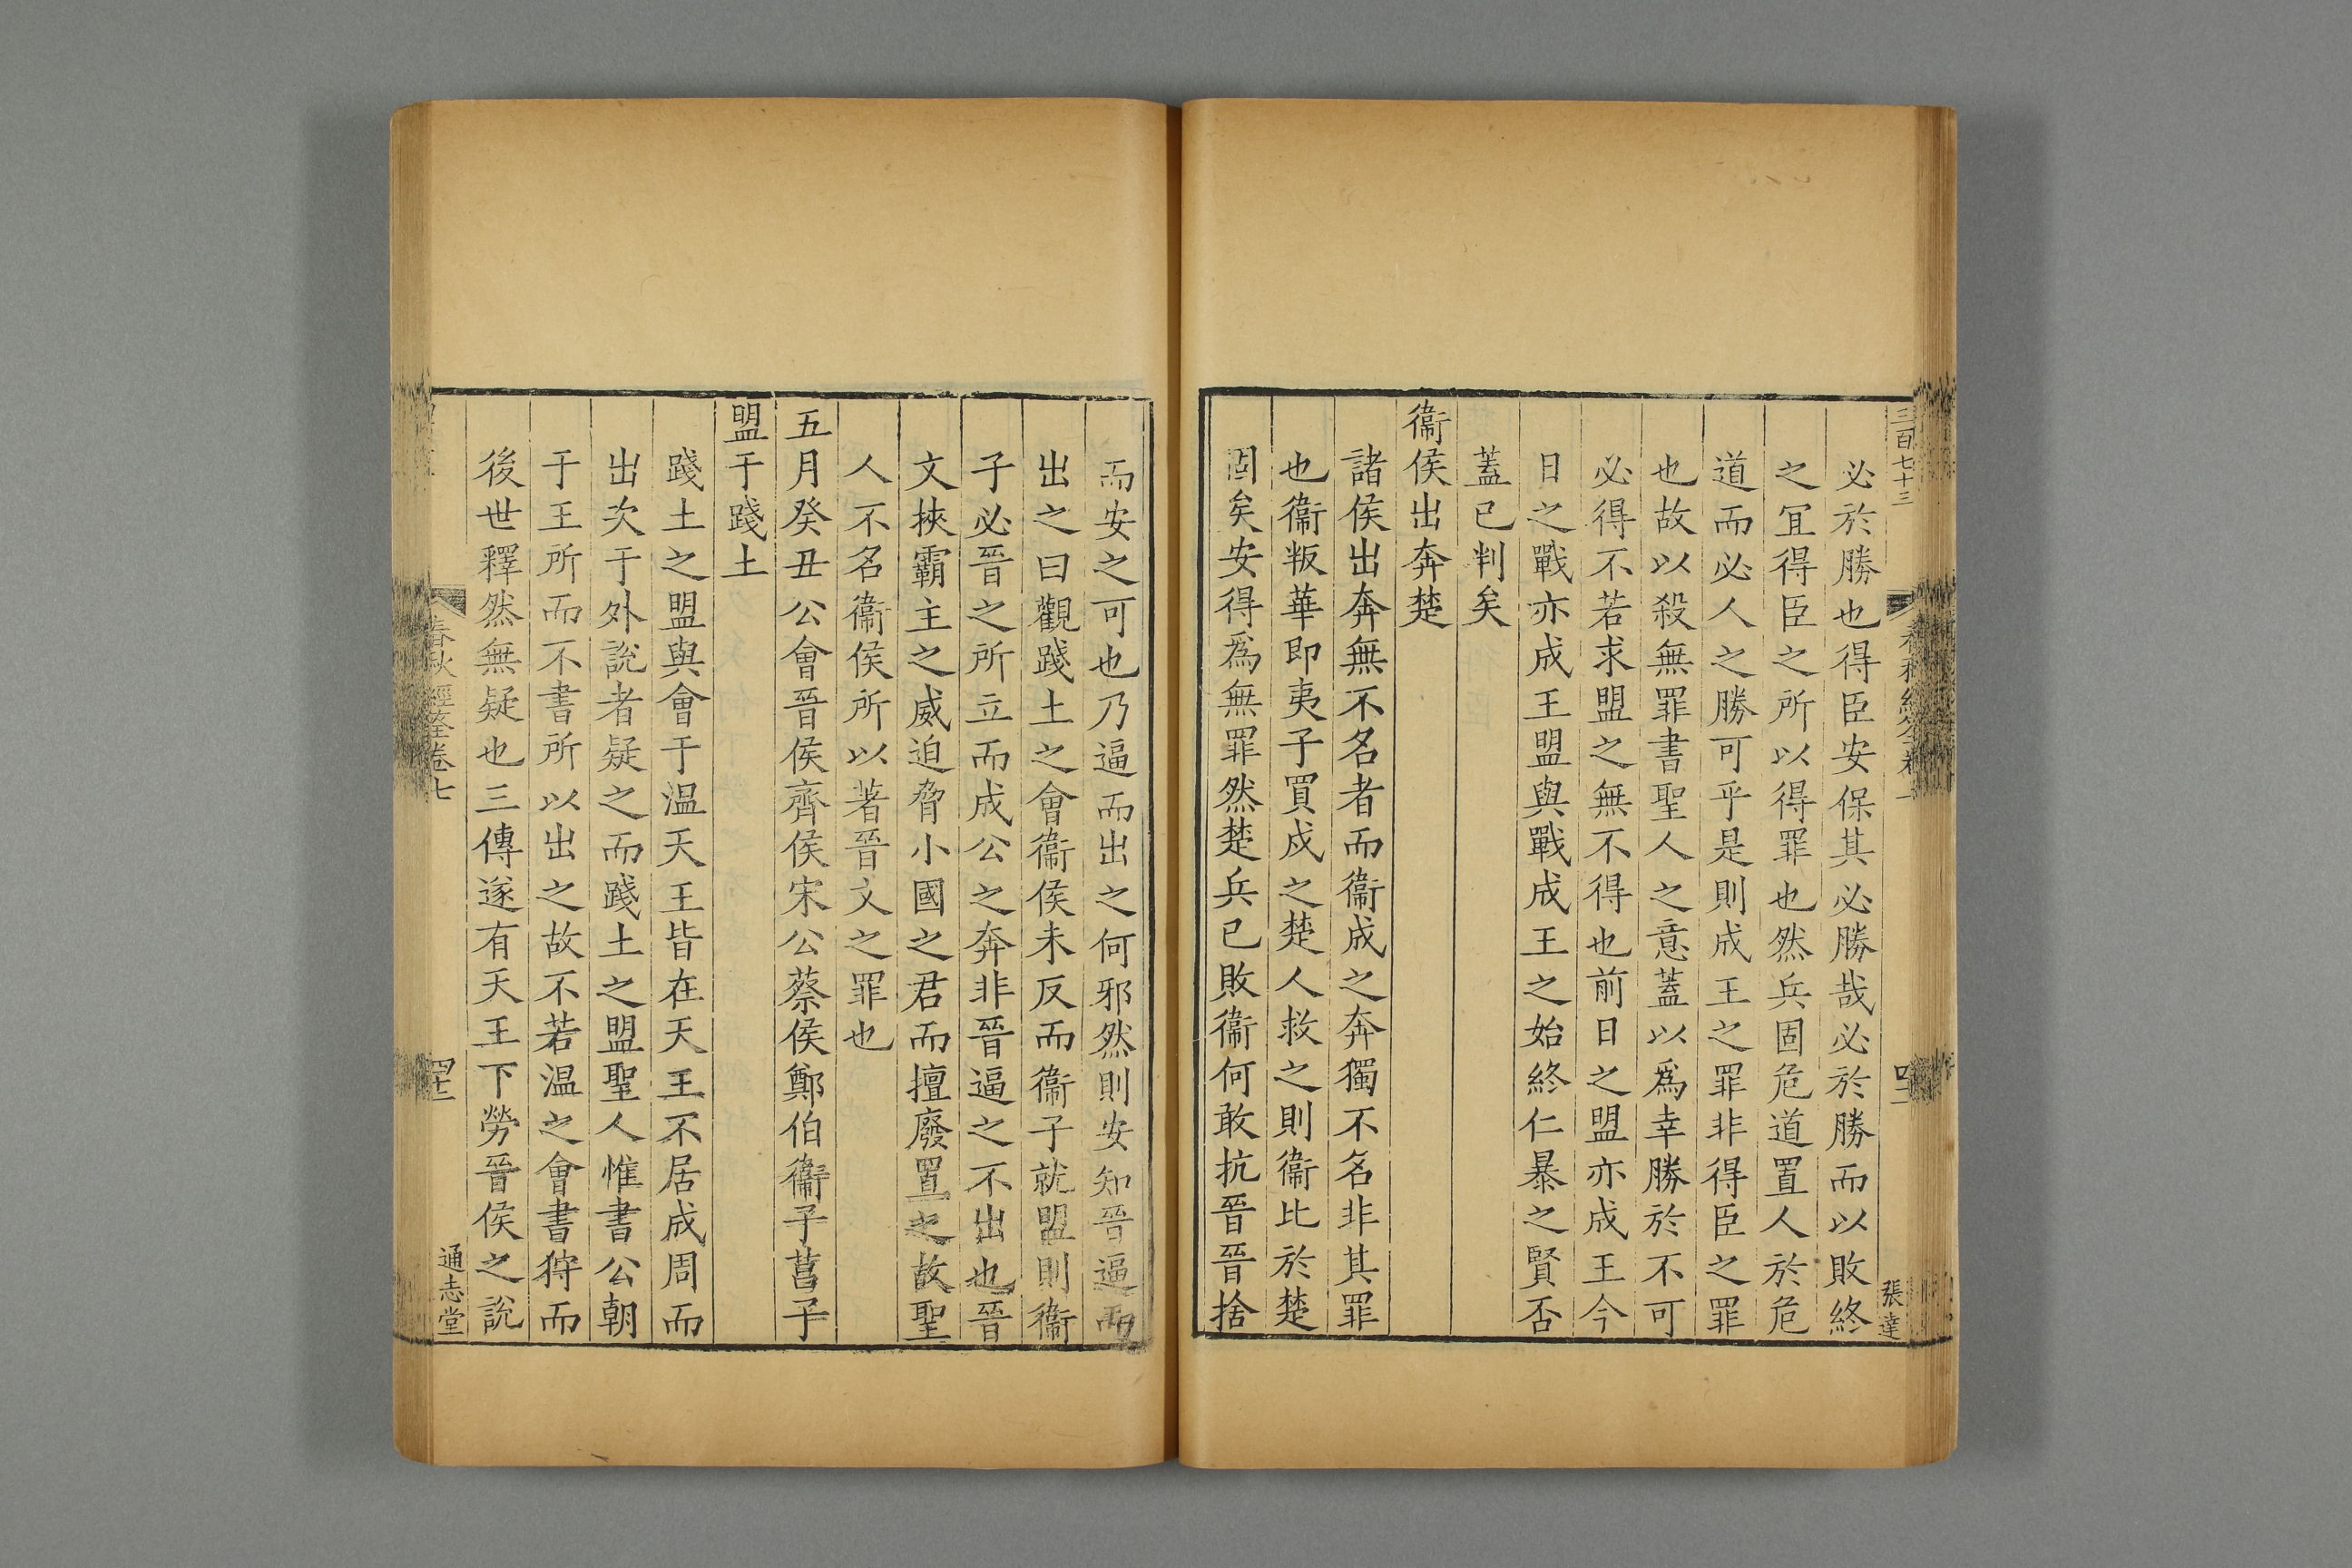 三百七十三
張達
必於勝也得臣安保其必勝哉必於勝而以敗終
之冝得臣之所以得罪也然兵固危道置人於危
道而必人之勝可乎是則成王之罪非得臣之罪
也故以殺無罪書聖人之意蓋以爲幸勝於不可
必得不若求盟之無不得也前日之盟亦成王今
日之戰亦成王盟與戰成王之始終仁暴之賢否
蓋已判矣
衞侯出奔楚
諸侯出奔無不名者而衞成之奔獨不名非其罪
也衞叛華即夷子買戍之楚人救之則衞比於楚
固矣安得爲無罪然楚兵已敗衞何敢抗晉晉捨
而安之可也乃逼而出之何邪然則安知晉逼而
出之曰觀踐土之會衞侯未反而衞子就盟則衞
子必晉之所立而成公之奔非晉逼之不出也晉
文挾霸主之威迫脅小國之君而擅廢置之故聖
人不名衞侯所以著晉文之罪也
五月癸丑公會晉侯齊侯宋公蔡侯鄭伯衞子莒子
盟于踐土
踐土之盟與會于温天王皆在天王不居成周而
出次于外說者疑之而踐土之盟聖人惟書公朝
于王所而不書所以出之故不若温之會書狩而
後世釋然無疑也三傳遂有天王下勞晉侯之說
春秋經筌卷七
通志堂